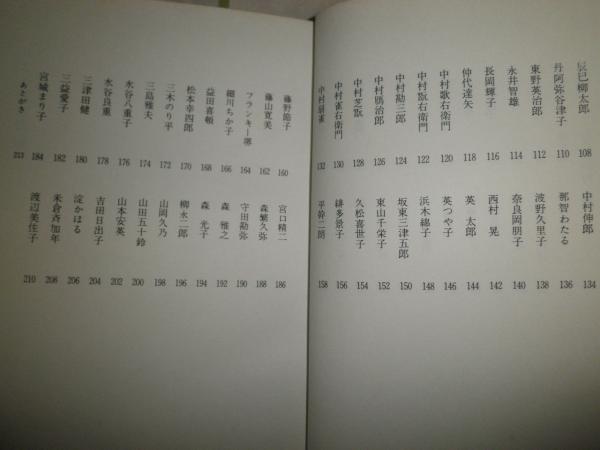 辰巳柳太郎 108
丹阿弥谷津子 110
東野英治郎 112
永井智雄 114
長岡輝子 116
仲代達矢 118
中村歌右衛門 120
中村翫右衛門 122
中村勘三郎 124
中村鴈治郎 126
中村芝翫 128
中村雀右衛門 130
中村扇雀 132
中村伸郎 134
那智わたる 136
波野久里子 138
奈良岡朋子 140
西村 晃 142
英 太郎 144
英つや子 146
浜木綿子 148
坂東三津五郎 150
東山千栄子 152
久松喜世子 154
緋多景子 156
平幹二朗 158
藤野節子 160
藤山寛美 162
フランキー堺 164
細川ちか子 166
益田喜頓 168
松本幸四郎 170
三木のり平 172
三島雅夫 174
水谷八重子 176
水谷良重 178
三津田健 180
三益愛子 182
宮城まり子 184
宮口精二 186
森繁久弥 188
守田勘弥 190
森 雅之 192
森 光子 194
柳永二郎 196
山岡久乃 198
山田五十鈴 200
山本安英 202
吉田日出子 204
淀かほる 206
米倉斉加年 208
渡辺美佐子 210
あとがき 213